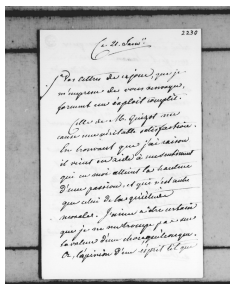 2230
Ce 21 Janv.
Vos lettres de ce jour, que je
m'empresse de vous renvoyer,
forment un exploit complet.
Celle de M. Guizot me
cause une véritable satisfaction.
En trouvant que j'ai raison
il vient en aide à un sentiment
qui en moi atteint la hauteur
d'une passion, et qui n'est autre
que celui de la quiétude
morale. J'aime à être certain
que je ne me trompe pas sur
la valeur d'une chose quelconque.
Or, l'opinion d'un esprit tel que